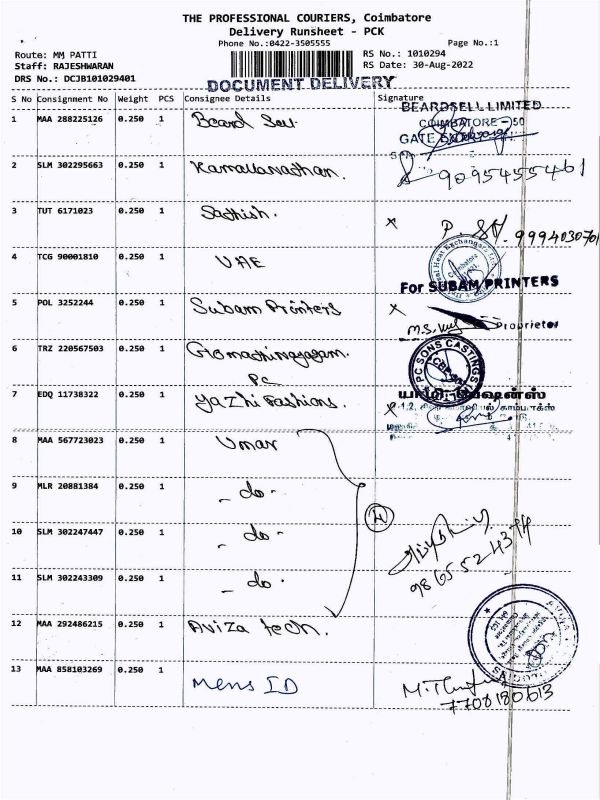 THE PROFESSIONAL COURIERS, Coimbatore
Delivery Runsheet - PCK
Phone No.:0422-3505555 Page No.:1
Route: MM PATTI RS No.: 1010294
Staff: RAJESHWARAN RS Date: 30-Aug-2022
DRS No.: DCJB101029401
DOCUMENT DELIVERY
S No Consignment No Weight PCS Consignee Details Signature
BEARDSELL LIMITED
1 MAA 288225126 0.250 1 Beard Sell COIMBATORE - 50
GATE
2 SLM 302295663 0.250 1 Kamalanathan. 9095455461
3 TUT 6171023 0.250 1 Sathish. 9994030701
4 TCG 90001810 0.250 1 UAE Coimbatore
For SUBAM PRINTERS
5 POL 3252244 0.250 1 Subam Printers
Proprietor
6 TRZ 220567503 0.250 1 PC SONS CASTINGS
PC
7 EDQ 11738322 0.250 1 Yazhi Fashions.
8 MAA 567723023 0.250 1 Umar
9 MLR 20881384 0.250 1 - do -
10 SLM 302247447 0.250 1 - do -
11 SLM 302243309 0.250 1 - do -
9865524394
12 MAA 292486215 0.250 1 Aviza Tech.
13 MAA 858103269 0.250 1 Mens ID
7708180613